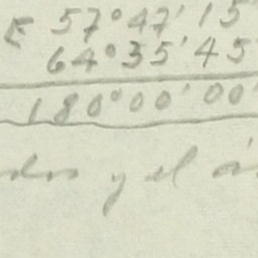 E 57° 47' 15
64° 35' 45
180° 00' 00'
dos y el á